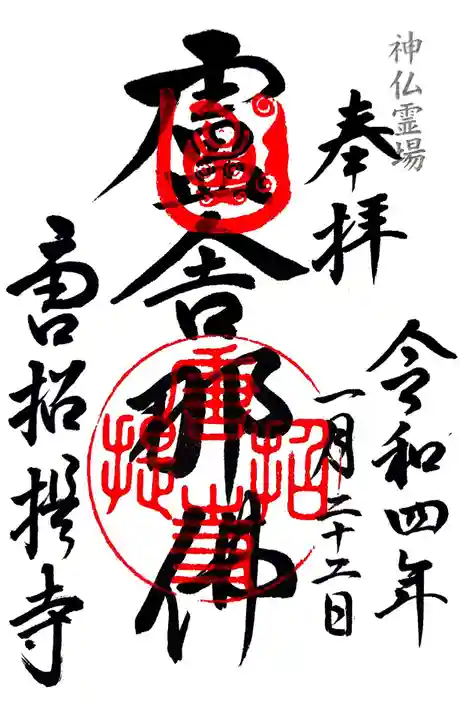 神仏霊場
奉拝
令和四年
一月二十二日
盧舎那佛
唐招提寺
唐招提寺